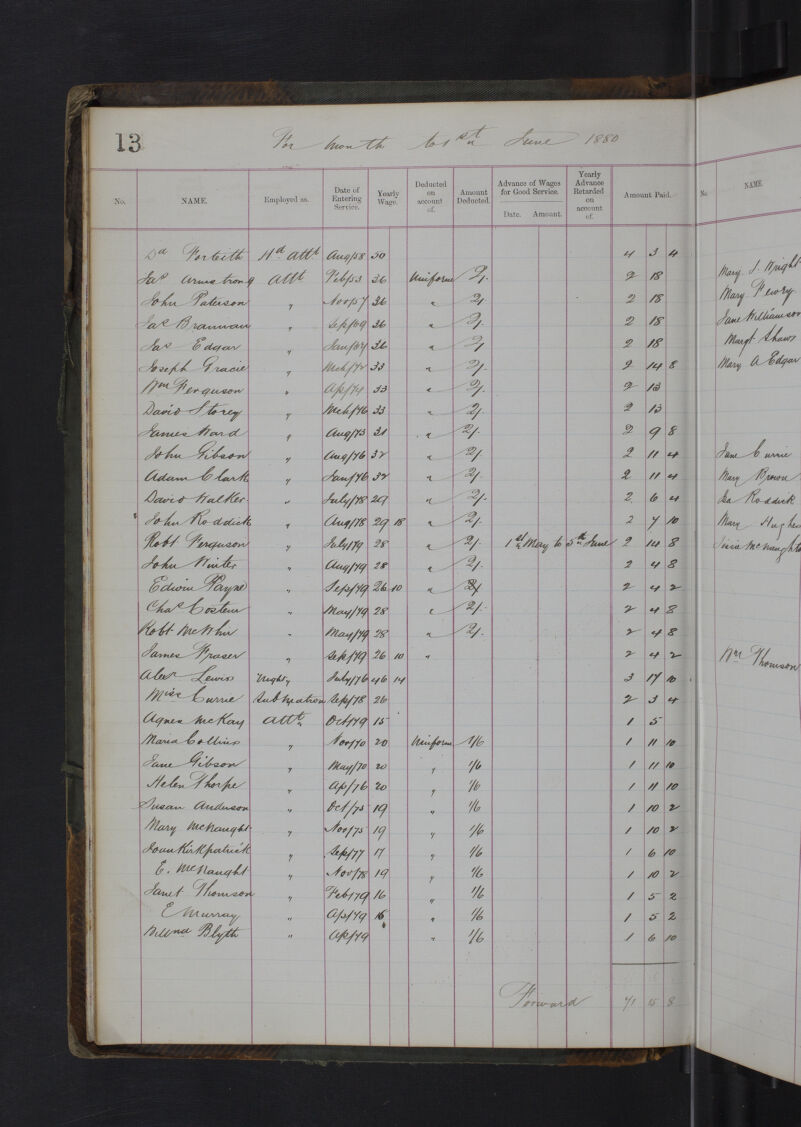 13
For month to 1st June 1880
No. NAME. Employed as. Date of Entering Service. Yearly Wage. Deducted on account of. Amount Deducted. Advance of Wages for Good Service. Date. Amount. Yearly Advance Retarded on account of. Amount Paid.
Dd Forteith Hd Attt Aug/58 50 4 3 4
Jas Armstrong Attt Feb/53 36 Uniform 2/. 2 18
John Paterson " Nov/57 36 " 2/. 2 18
Jas Brannan " Sep/69 36 " 2/. 2 18
Jas Edgar " Jan/67 36 " 2/. 2 18
Joseph Gracie " Mch/72 33 " 2/. 2 14 8
Wm Ferguson " Ap/74 33 " 2/. 2 13
David Storey " Mch/76 33 " 2/. 2 13
James Ward " Aug/75 31 " 2/. 2 9 8
John Gibson " Aug/76 32 " 2/. 2 11 4
Adam Clark " Jan/76 32 " 2/. 2 11 4
David Walker " July/78 29 " 2/. 2 6 4
John Roddick " Aug/78 29 18 " 2/. 2 7 10
Robt Ferguson " July/79 28 " 2/. 1st May to 5th June 2 14 8
John Winter " Aug/79 28 " 2/. 2 4 8
Edwin Payne " Sep/79 26 10 " 2/. 2 4 2
Chas Costem " May/79 28 " 2/. 2 4 8
Robt McWhir " May/79 28 " 2/. 2 4 8
James Fraser " Sep/79 26 10 " 2 4 2
Alexr Lewis Night " July/76 46 14 3 17 10
Miss Currie Sub Matron Sep/78 26 2 3 4
Agnes McKay Attt Oct/79 15 1 5
Maria Collins " Nov/70 20 Uniform 1/6 1 11 10
Jane Gibson " May/70 20 " 1/6 1 11 10
Helen Thorpe " Ap/76 20 " 1/6 1 11 10
Susan Anderson " Oct/75 19 " 1/6 1 10 2
Mary McNaught " Nov/75 19 " 1/6 1 10 2
Joan Kirkpatrick " Sep/77 17 " 1/6 1 6 10
E. McNaught " Nov/78 19 " 1/6 1 10 2
Janet Thomson " Feb/79 16 " 1/6 1 5 2
E Murray " Ap/79 16 " 1/6 1 5 2
Blyth " Ap/79 " 1/6 1 6 10
Forward 71 15 8
No. NAME.
Mary J. Wright
Mary Fewry
Jane Williamson
Margt Shaw
Mary A Edgar
Jane Currie
Mary Brown
Roddick
Mary Hughes
McNaught
Wm Thomson